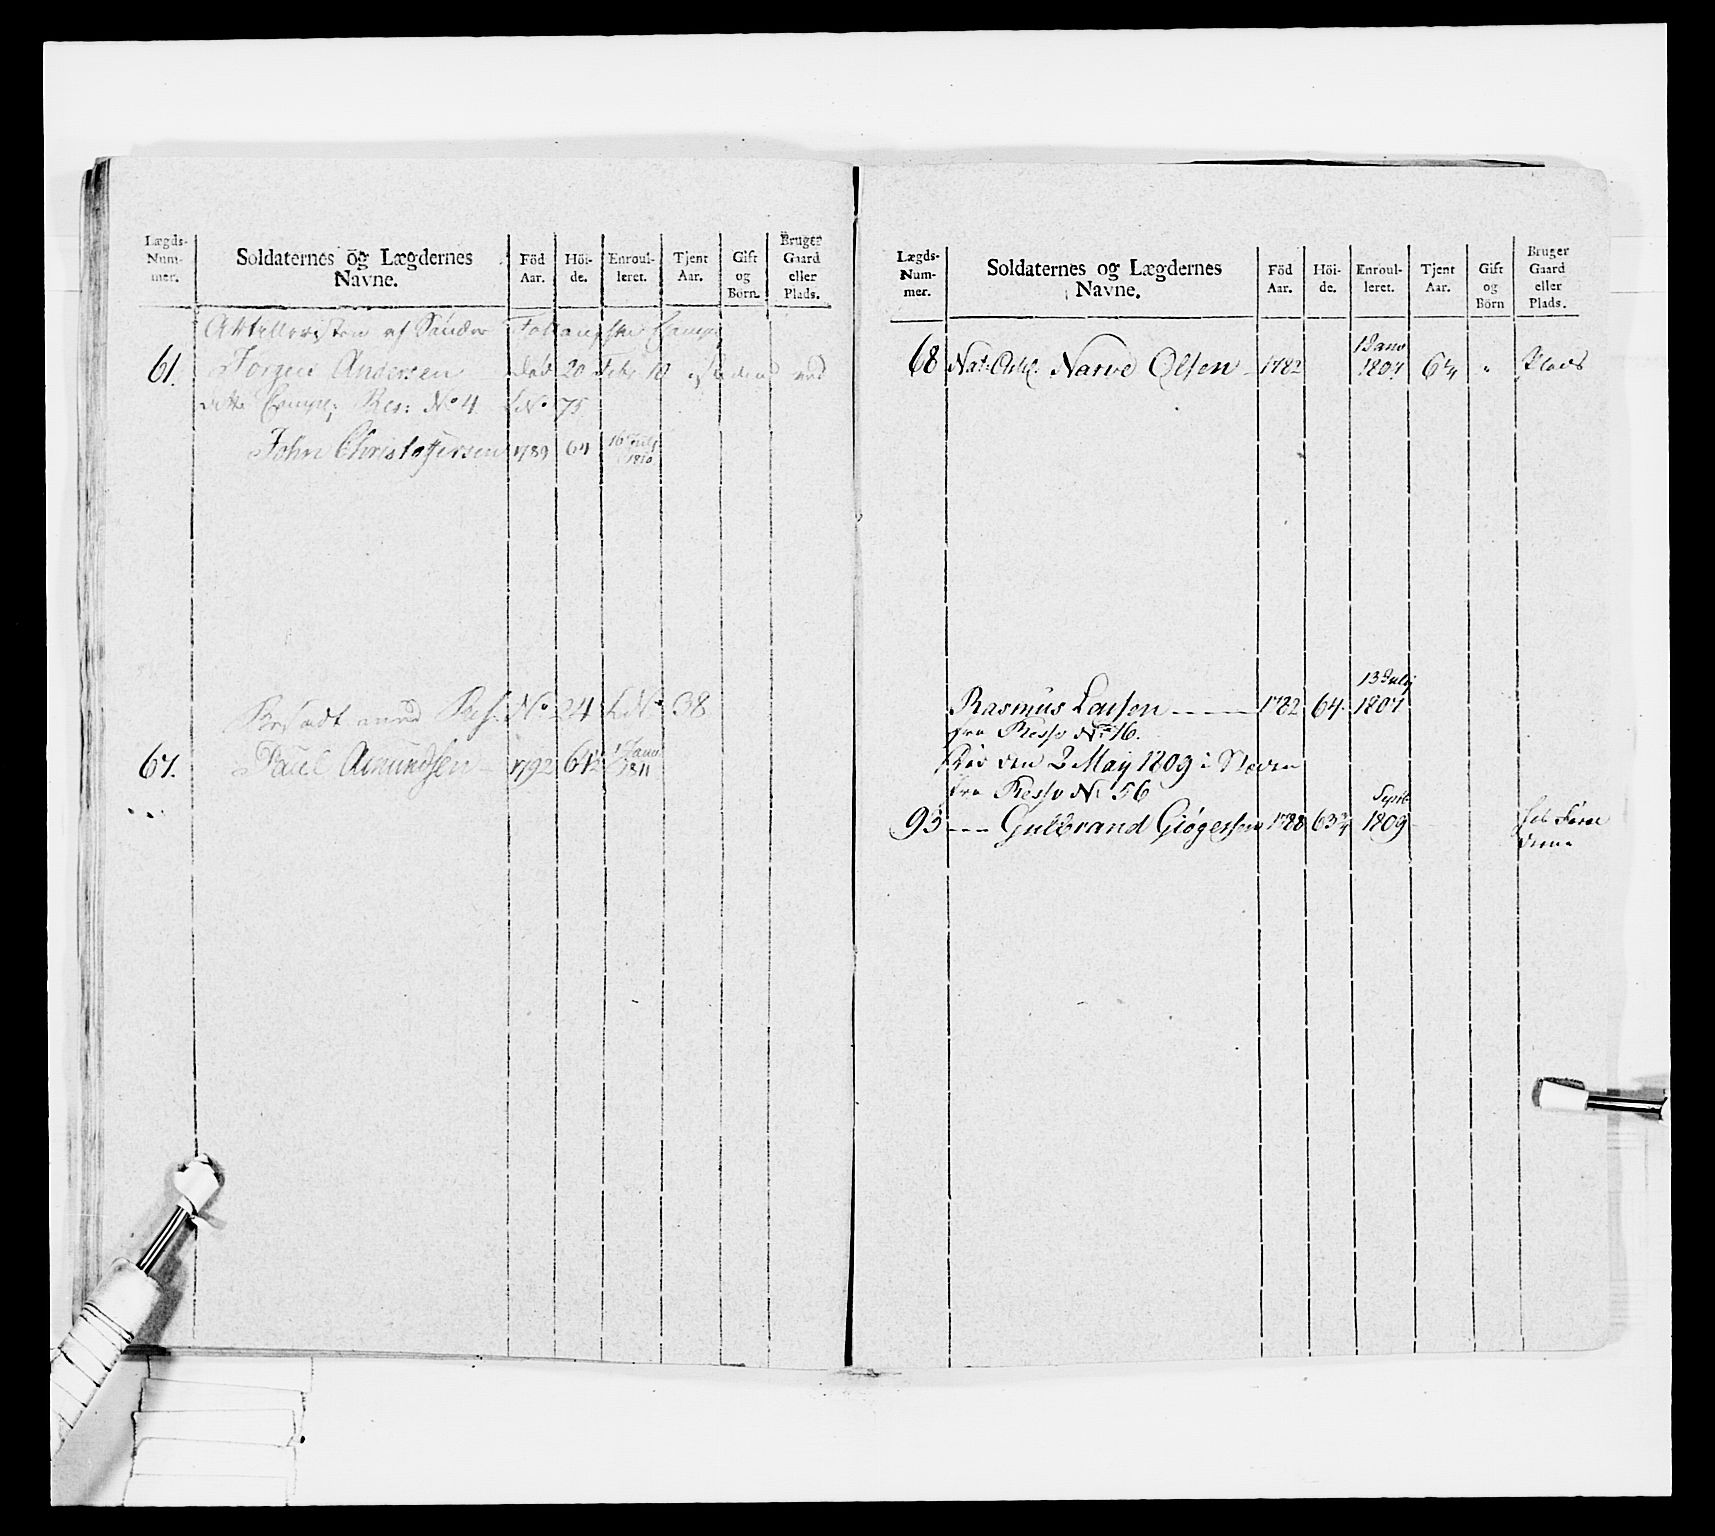 Lægds-Num-mer. Soldaternes og Lægdernes Navne. Föd Aar. Höi-de. Enroul-leret. Tjent Aar. Gift og Börn. Bruger Gaard eller Plads.
Artilleristen af Søndre Comp
61. Jørgen Andersen død 20 Febr 10 ved
dette Comp: Res: No 4. LNo 75
John Christophersen 1789 64 16 July 1810
Besadt med Res. No 24 LNo 38
67. Paul Amundsen 1792 64½ 1 Janu 1811
Lægds-Num-mer. Soldaternes og Lægdernes Navne. Föd Aar. Höi-de. Enroul-leret. Tjent Aar. Gift og Börn Bruger Gaard eller Plads.
68 Narve Olsen 1782 1807 6¼ " Plads
Rasmus Larsen 1782 64 13 July 1807
fra Reserv No 16.
Død den 2 May 1809 i
fra Reserv No 56
93 --- Gulbrand 1788 63¾ Septb 1809